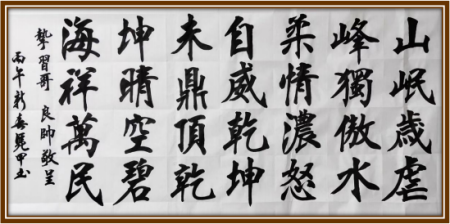 山岷歲虐
峰獨傲水
柔情濃怒
自威乾坤
未鼎頂乾
坤晴空碧
海祥萬民
摯習哥 良帥敬呈
丙午新春